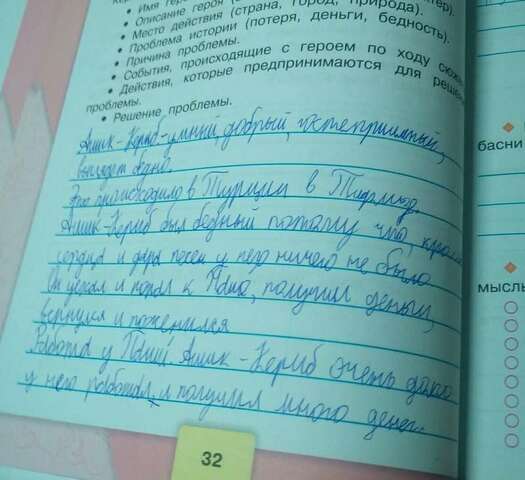 • Имя геро
• Описание героя (
• Место действия (страна, город, природа).
• Проблема истории (потеря, деньги, бедность).
• Причина проблемы.
• События, происходящие с героем по ходу сюже
• Действия, которые предпринимаются для реше
проблемы.
• Решение проблемы.
Ашик-Кериб-умный, добрый, гостеприимный,
выглядет бедно.
Это происходило в Турции в
Ашик-Кериб был бедный потому что, кроме
сердца и дара песен у него ничего не было
Он уехал и попал к Паша, получил деньги,
вернулся и поженился
Работа у Паши. Ашик-Кериб очень
у него работал, и получил много денег.
32
басни
мысль